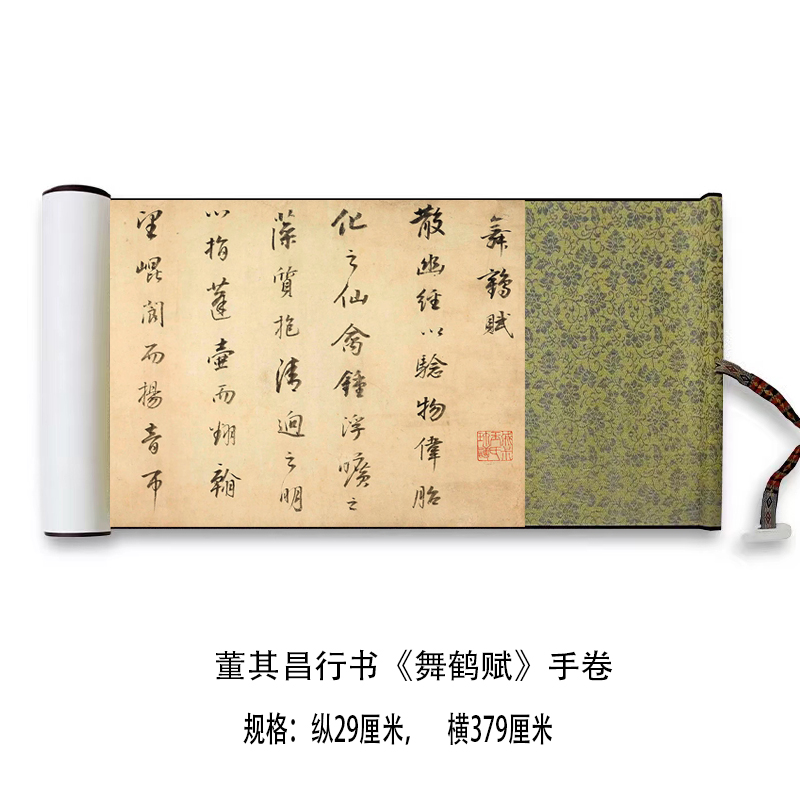 舞鶴賦
散幽經以驗物偉胎
化之仙禽鍾浮曠之
藻質抱清迥之明
心指蓬壺而翻翰
望崐閬而揚音帀
董其昌行书《舞鹤赋》手卷
规格：纵29厘米， 横379厘米